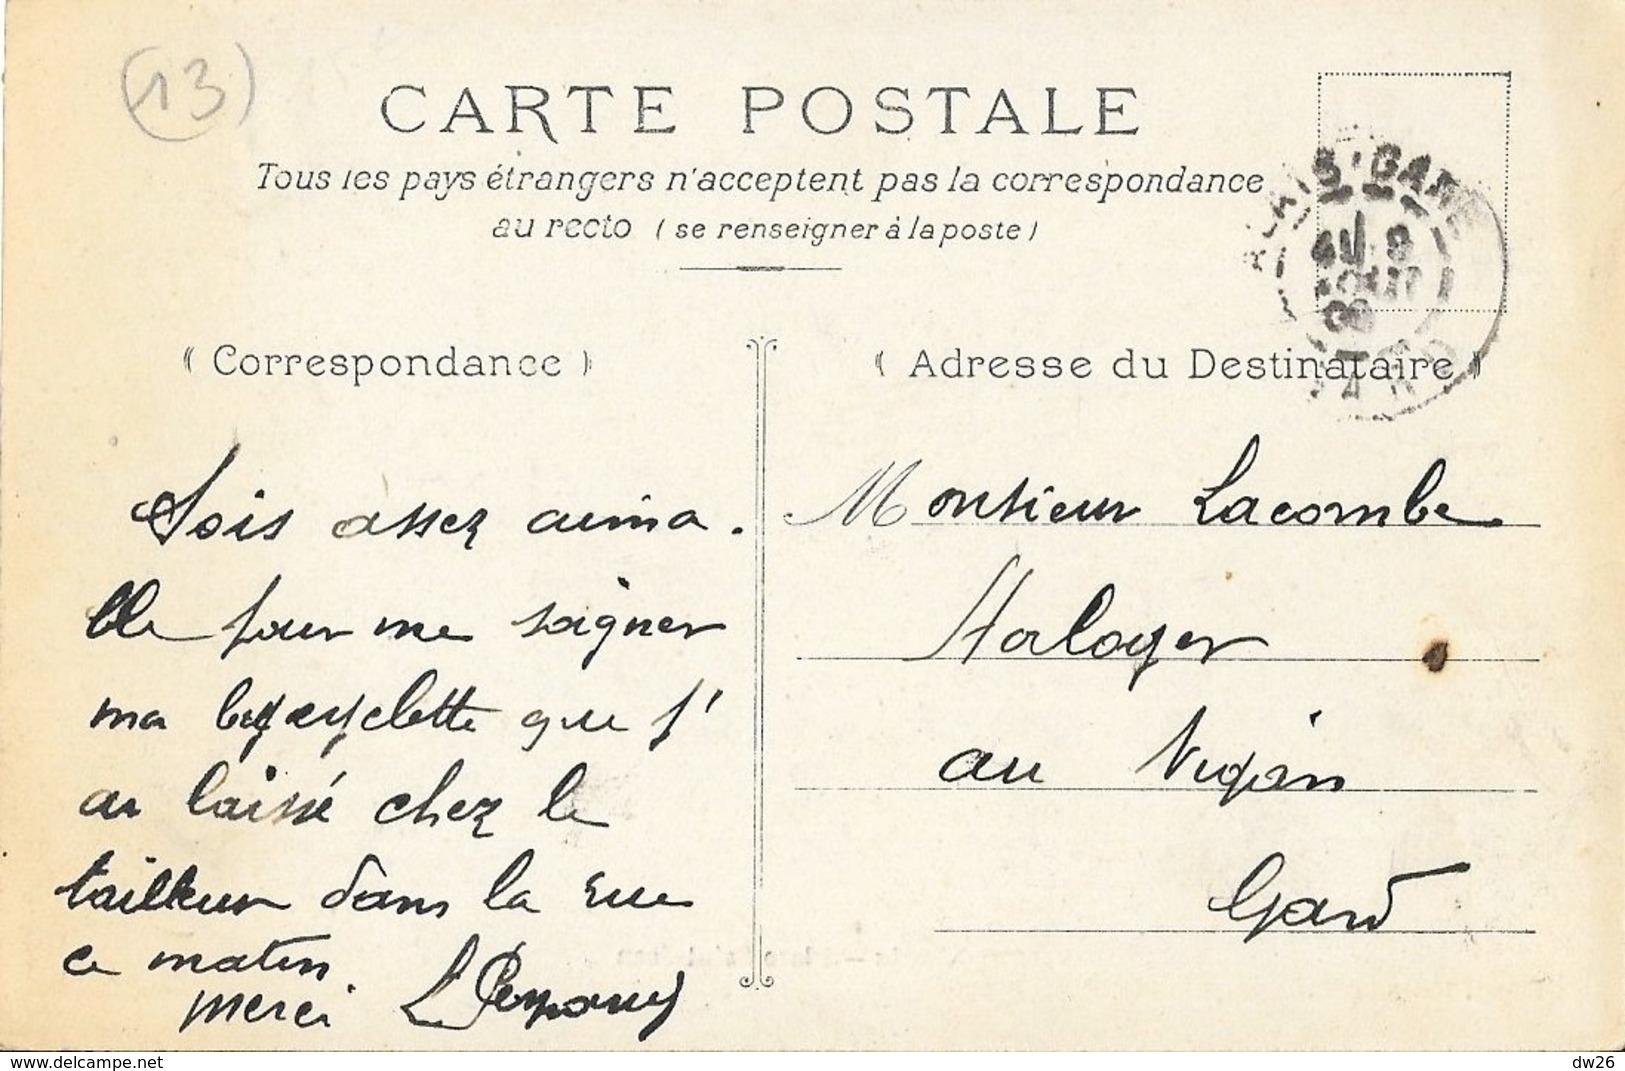 13
CARTE POSTALE
Tous les pays étrangers n'acceptent pas la correspondance
au recto (se renseigner à la poste)
(Correspondance)
Sois assez aima.
ble pour me soigner
ma bycyclette que j'
ai laissé chez le
tailleur dans la rue
ce matin
merci L.
(Adresse du Destinataire)
Monsieur Lacombe
Horloger
au Vigan
Gard
GARE
GARD
www.delcampe.net
dw26